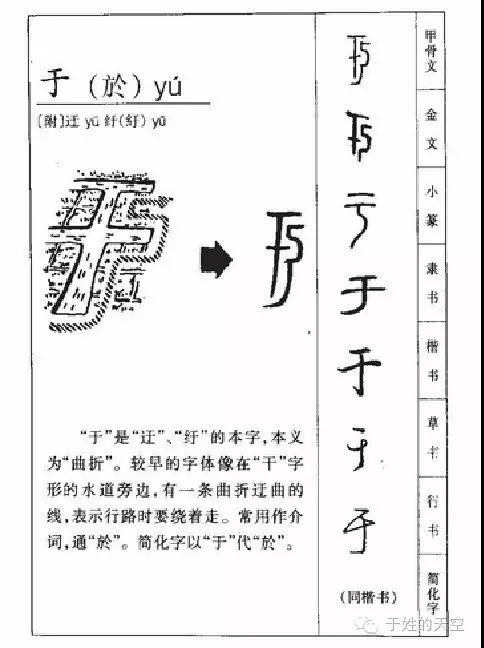 于（於）yú
〔附〕迂 yū 纡(紆) yū
“于”是“迂”、“纡”的本字，本义
为“曲折”。较早的字体像在“干”字
形的水道旁边，有一条曲折迂曲的
线，表示行路时要绕着走。常用作介
词，通“於”。简化字以“于”代“於”。
甲骨文
金文
小篆
隶书
于
楷书
于
草书
于
行书
于
简化字
（同楷书）
于姓的天空